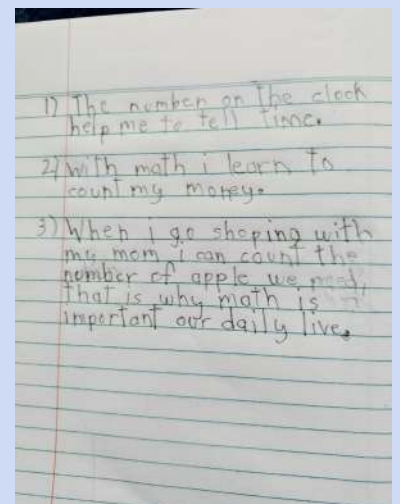 1) The number on the clock
help me to tell time.
2) with math i learn to
count my money.
3) When i go shoping with
my mom i can count the
number of apple we need,
that is why math is
important our daily live.